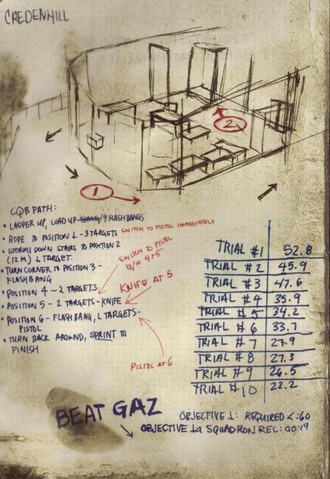 CREDENHILL
2
1
CQB PATH:
• LADDER UP, LOAD UP 4 FLASHBANGS
• ROPE TO POSITION 1 - 3 TARGETS SWITCH TO PISTOL IMMEDIATELY
• STORMS DOWN STAIRS TO POSITION 2
(12 M) 1 TARGET.
SWITCH TO PISTOL
B/W 4+5
• TURN CORNER IN POSITION 3 -
FLASHBANG
• POSITION 4 - 2 TARGETS
KNIFE AT 5
• POSITION 5 - 2 TARGETS - KNIFE
• POSITION 6 - FLASHBANG, 1 TARGETS -
PISTOL
• TURN BACK AROUND, SPRINT TO
FINISH
PISTOL AT 6
TRIAL #1 52.8
TRIAL #2 45.9
TRIAL #3 47.6
TRIAL #4 35.9
TRIAL #5 34.2
TRIAL #6 33.7
TRIAL #7 27.9
TRIAL #8 27.3
TRIAL #9 26.5
TRIAL #10 22.2
BEAT GAZ
OBJECTIVE 1: REQUIRED <:60
OBJECTIVE 1a SQUADRON REC: 00:19